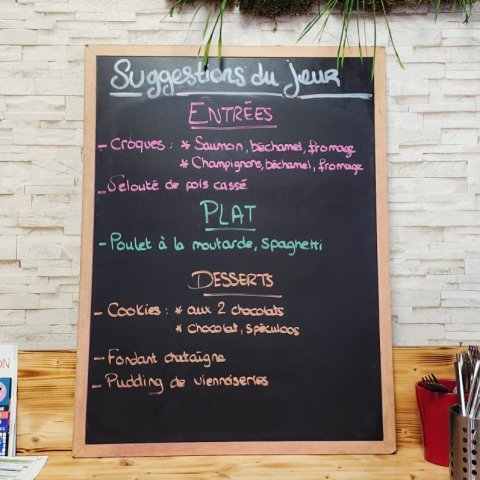 Suggestions du jour
ENTRÉES
- Croques : * Saumon, béchamel, fromage
* Champignons, béchamel, fromage
- Velouté de pois cassé
PLAT
- Poulet à la moutarde, spaghetti
DESSERTS
- Cookies : * aux 2 chocolats
* chocolat, spéculoos
- Fondant chataîgne
- Pudding de viennoiseries